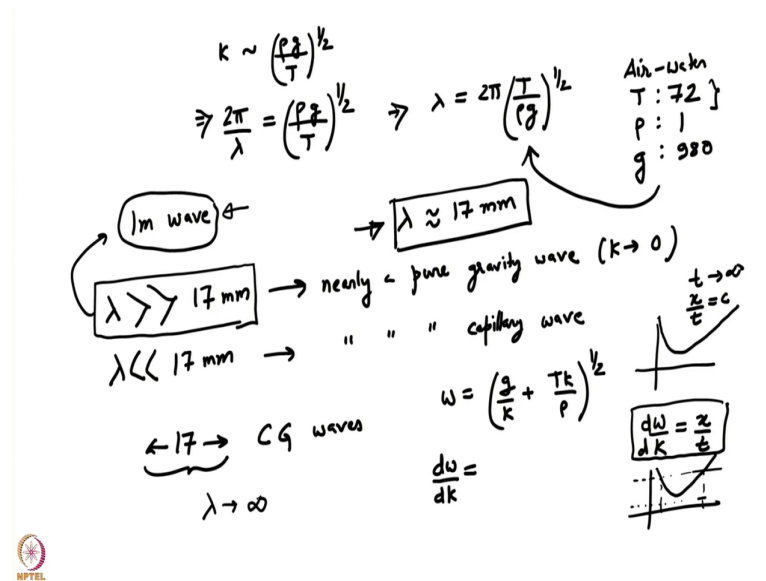 K ~ (ρg/T)^1/2
⇒ 2π/λ = (ρg/T)^1/2 ⇒ λ = 2π (T/ρg)^1/2
Air-water
T : 72 }
ρ : 1
g : 980
1m wave ←
→ λ ≈ 17 mm
λ >> 17 mm → nearly a pure gravity wave (K → 0)
λ << 17 mm → " " " capillary wave
t → ∞
x/t = c
ω = (g/k + Tk/ρ)^1/2
← 17 → CG waves
dω/dk = x/t
dω/dk =
λ → ∞
NPTEL